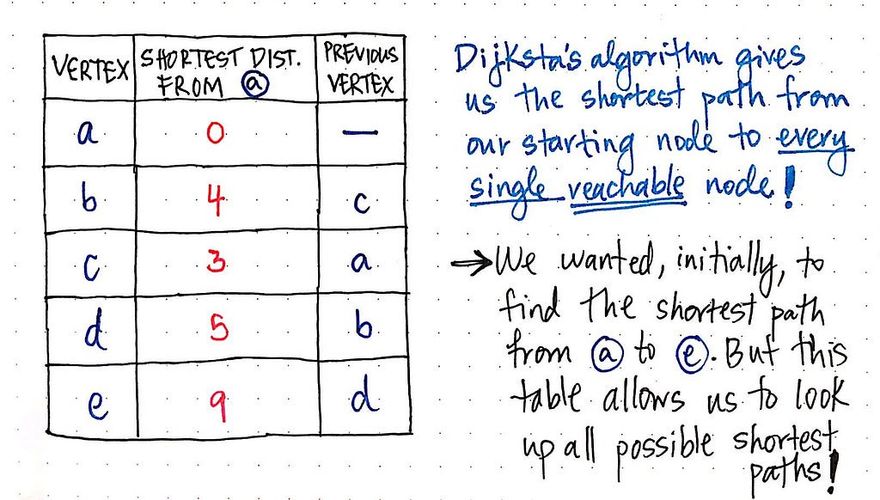 VERTEX SHORTEST DIST. FROM a PREVIOUS VERTEX
a 0 —
b 4 c
c 3 a
d 5 b
e 9 d
Dijksta's algorithm gives
us the shortest path from
our starting node to every
single reachable node!
→We wanted, initially, to
find the shortest path
from a to e. But this
table allows us to look
up all possible shortest
paths!